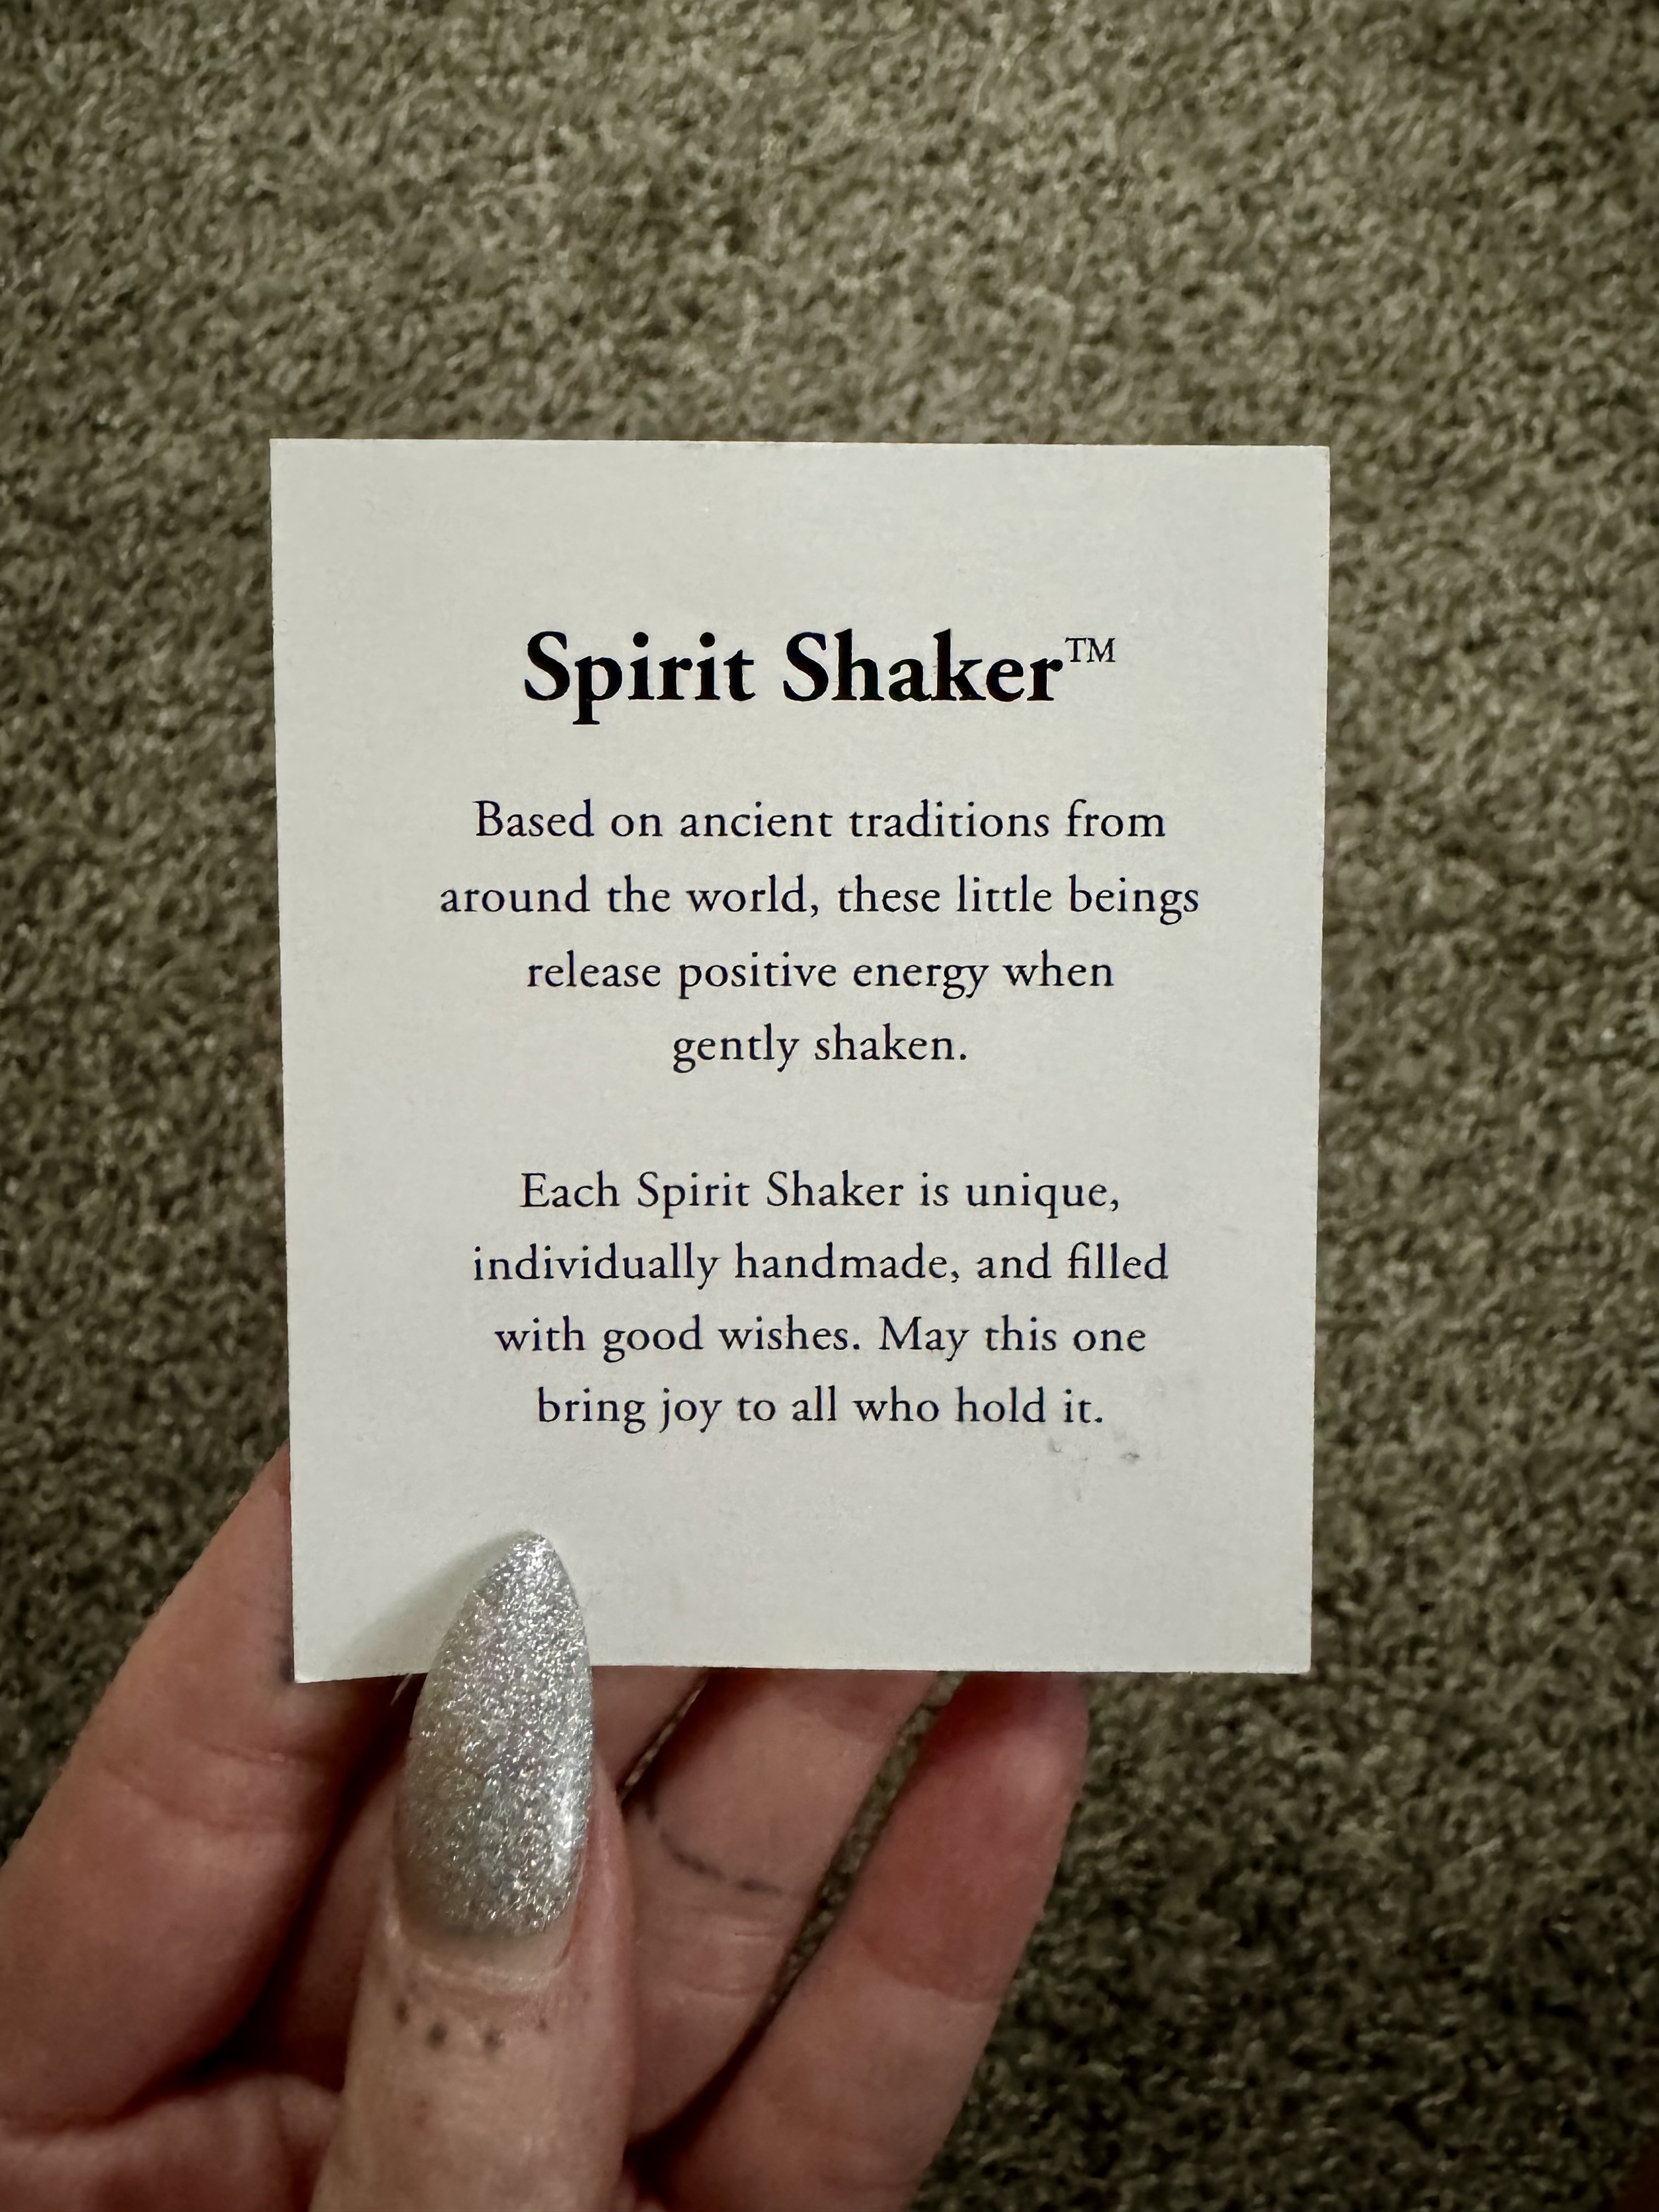 Spirit Shaker™
Based on ancient traditions from
around the world, these little beings
release positive energy when
gently shaken.
Each Spirit Shaker is unique,
individually handmade, and filled
with good wishes. May this one
bring joy to all who hold it.